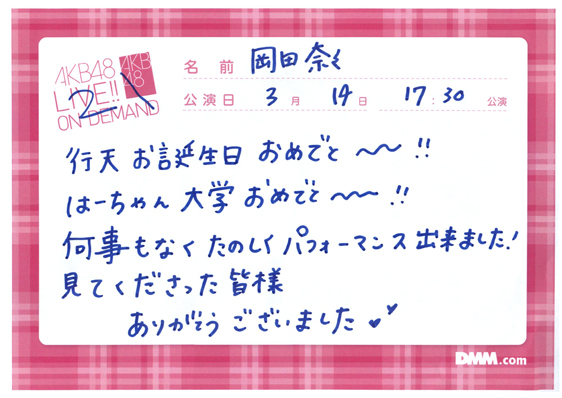 AKB48
LIVE!!
ON DEMAND
AKB
48
2人
名前 岡田奈々
公演日 3月 14日 17:30 公演
行天 お誕生日 おめでと〜〜!!
はーちゃん 大学 おめでと〜〜!!
何事もなく たのしく パフォーマンス 出来ました!
見てくださった 皆様
ありがとう ございました
DMM.com